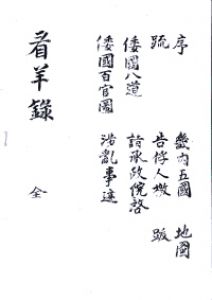 序 畿内五國 地圖
疏 告俘人檄 跋
倭國八道 詣承政院啓
倭國百官圖 涉亂事迹
看羊錄 全